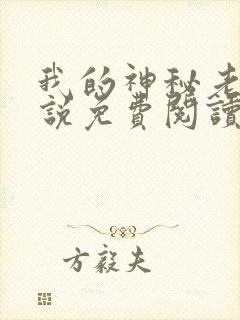 我的神秘老
説免費閱讀
方毅夫